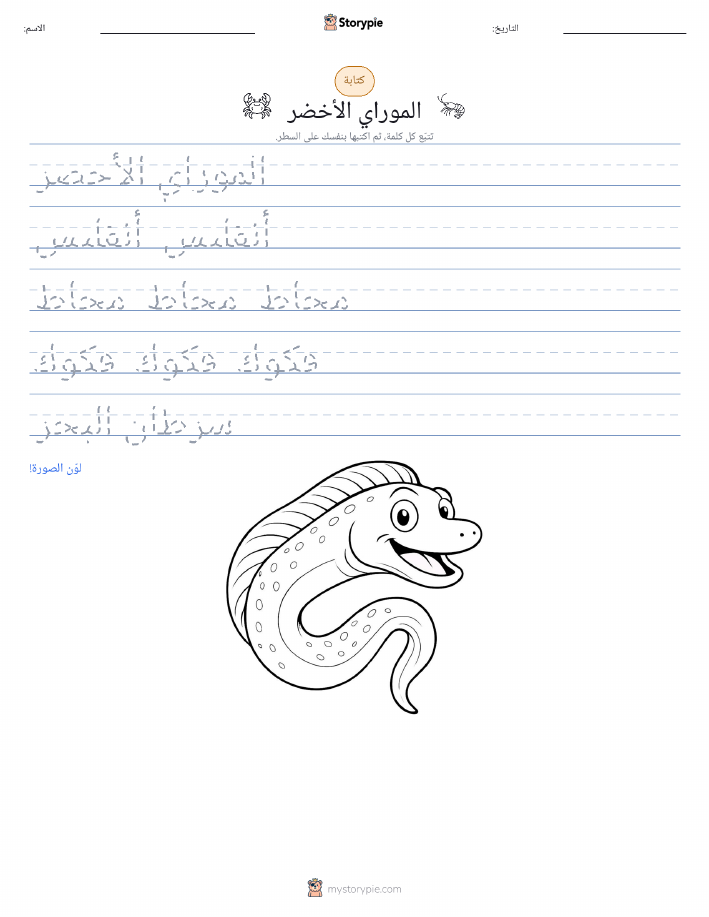 Storypie
الاسم: التاريخ:
كتابة
الموراي الأخضر
تتبّع كل كلمة، ثم اكتبها بنفسك على السطر.
الموراي الأخضر
أنقليس أنقليس
مخاط مخاط مخاط
فكوك فكوك فكوك
سرطان البحر
لوّن الصورة!
mystorypie.com